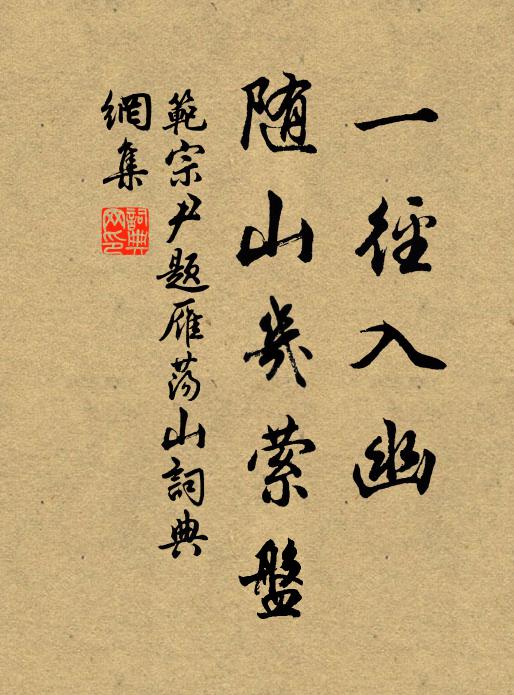 一徑入幽
隨山幾縈盤
範宗尹題雁蕩山詞典
網集
詞典網印